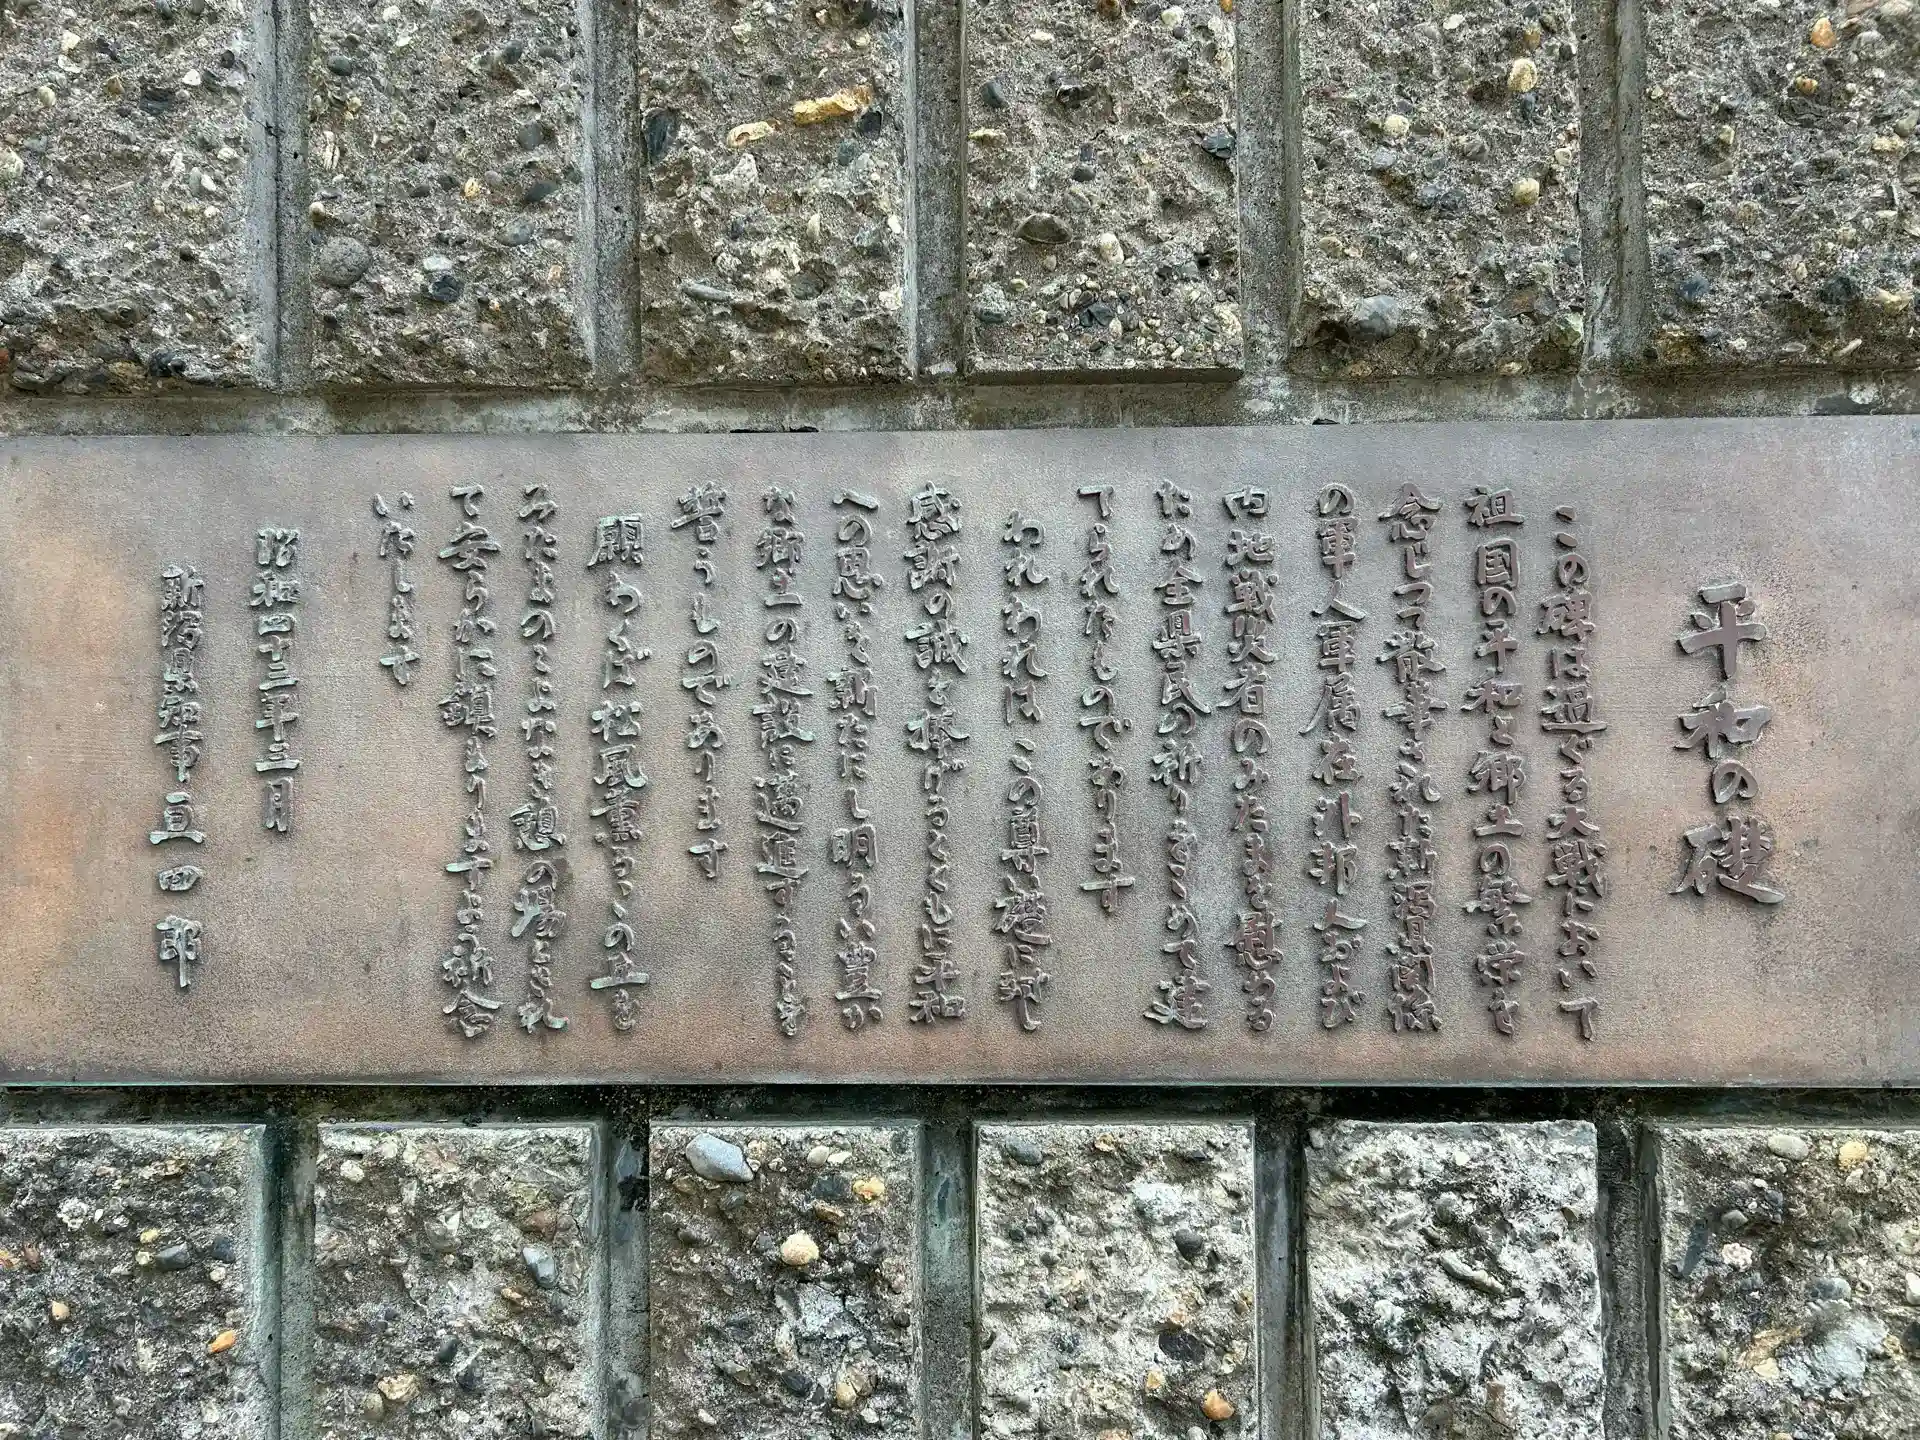 平和の礎
この碑は過ぐる大戦において
祖国の平和と郷土の繁栄を
念じつつ散華された新潟県関係
の軍人軍属在外邦人および
内地戦災者のみたまを慰める
ため全県民の祈りをこめて建
てられたものであります
われわれは この尊礎に対し
感謝の誠を捧げるとともに平和
への思いを新たにし明るい豊か
な郷土の建設に邁進することを
誓うものであります
願わくば松風薫るこの丘を
みたまのとこよなき憩の場とされ
て安らかに鎮まりますよう祈念
いたします
昭和四十三年三月
新潟県知事 亘 四 郎